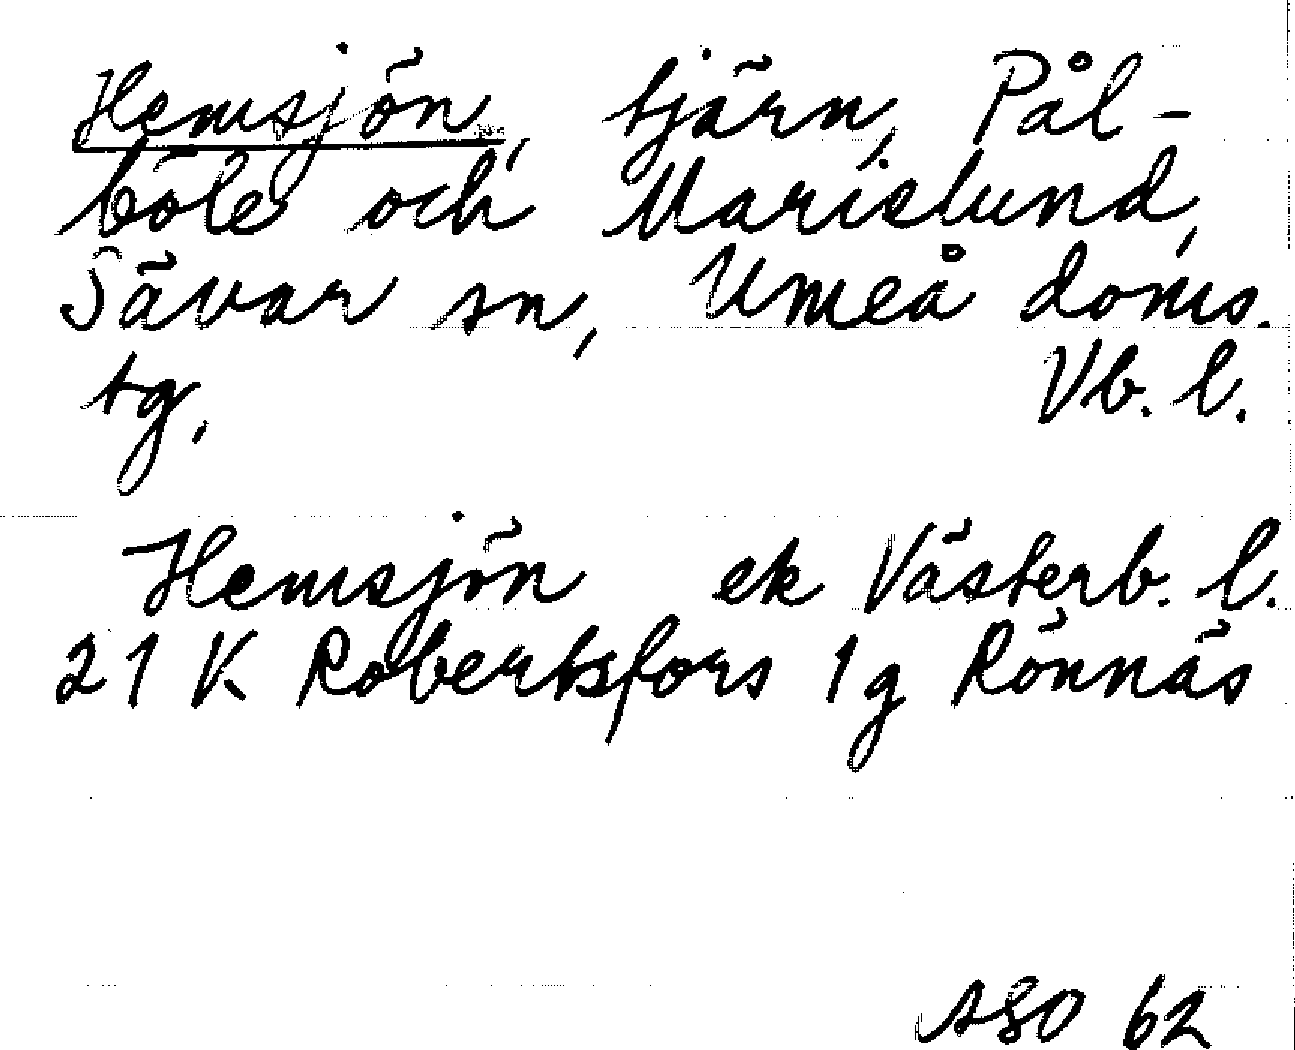 Hemsjön, tjärn, Pål-
böle och Marislund,
Sävar sn, Umeå doms.
tg. Vb. l.
Hemsjön ek Västerb. l.
21 K Robertsfors 1g Rönnäs
ASO 62